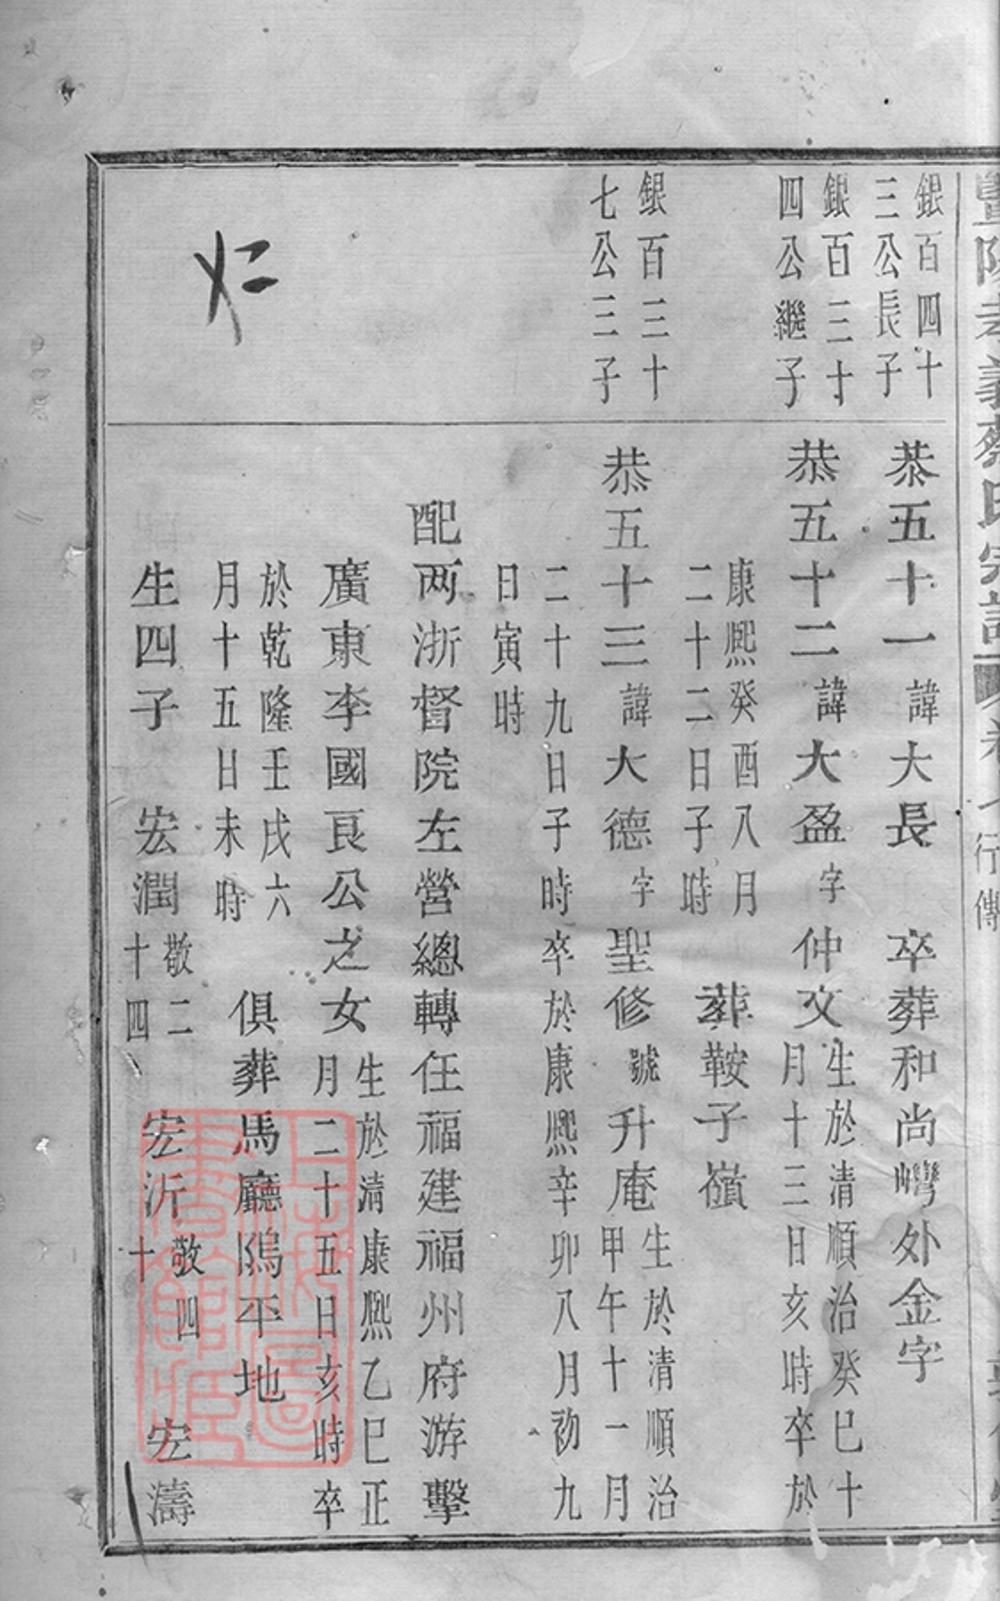 暨陽孝義蔡氏宗譜 卷 行傳
銀百四十
三公長子
恭五十一諱大長 卒葬和尚灣外金字
銀百三十
四公繼子
恭五十二諱大盈字仲文生於清順治癸巳十
月十三日亥時卒於
康熙癸酉八月
二十二日子時 葬鞍子嶺
銀百三十
七公三子
恭五十三諱大德字聖修號升庵生於清順治
甲午十一月
二十九日子時卒於康熙辛卯八月初九
日寅時
配两浙督院左營總轉任福建福州府游擊
廣東李國良公之女生於清康熙乙巳正
月二十五日亥時卒
於乾隆壬戌六
月十五日未時 俱葬馬廳隖平地
生四子 宏潤敬二
十四 宏沂敬四
十 宏濤
上海圖書館藏